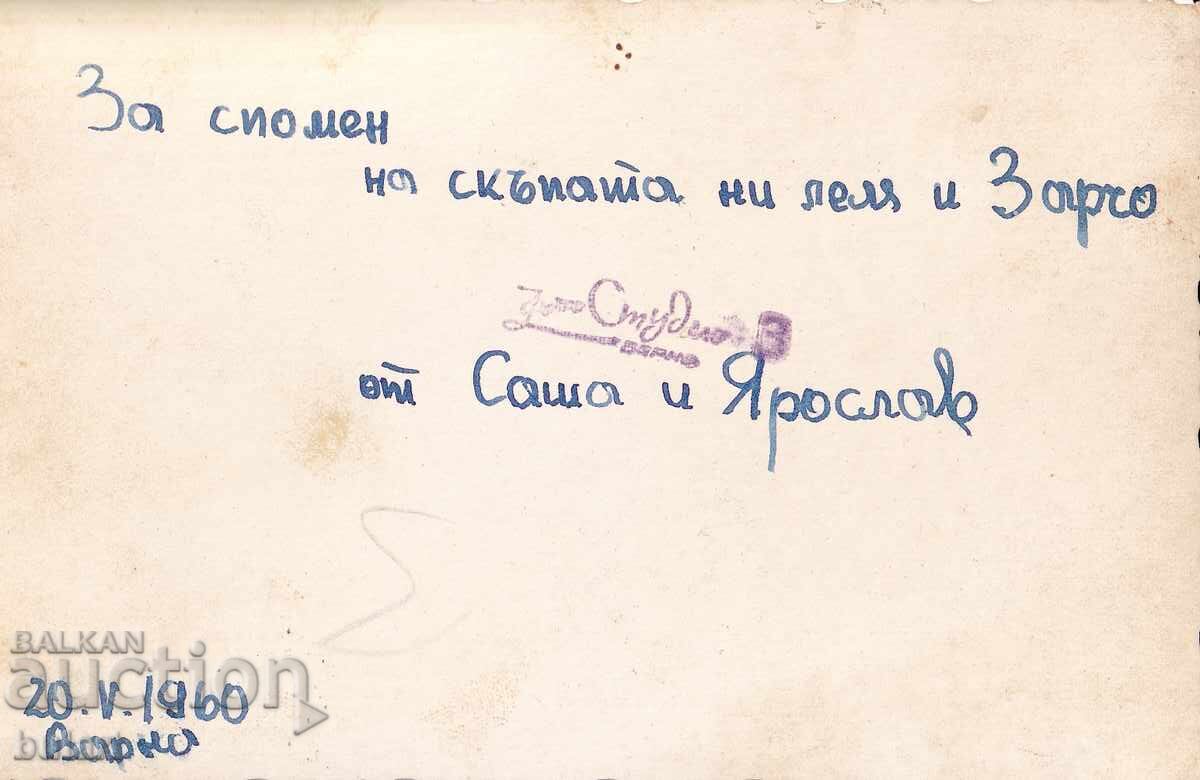 За спомен
на скъпата ни леля и Зарчо
фото Студио 3
Варна
от Саша и Ярослав
BALKAN
auction
20.V.1960
Варна